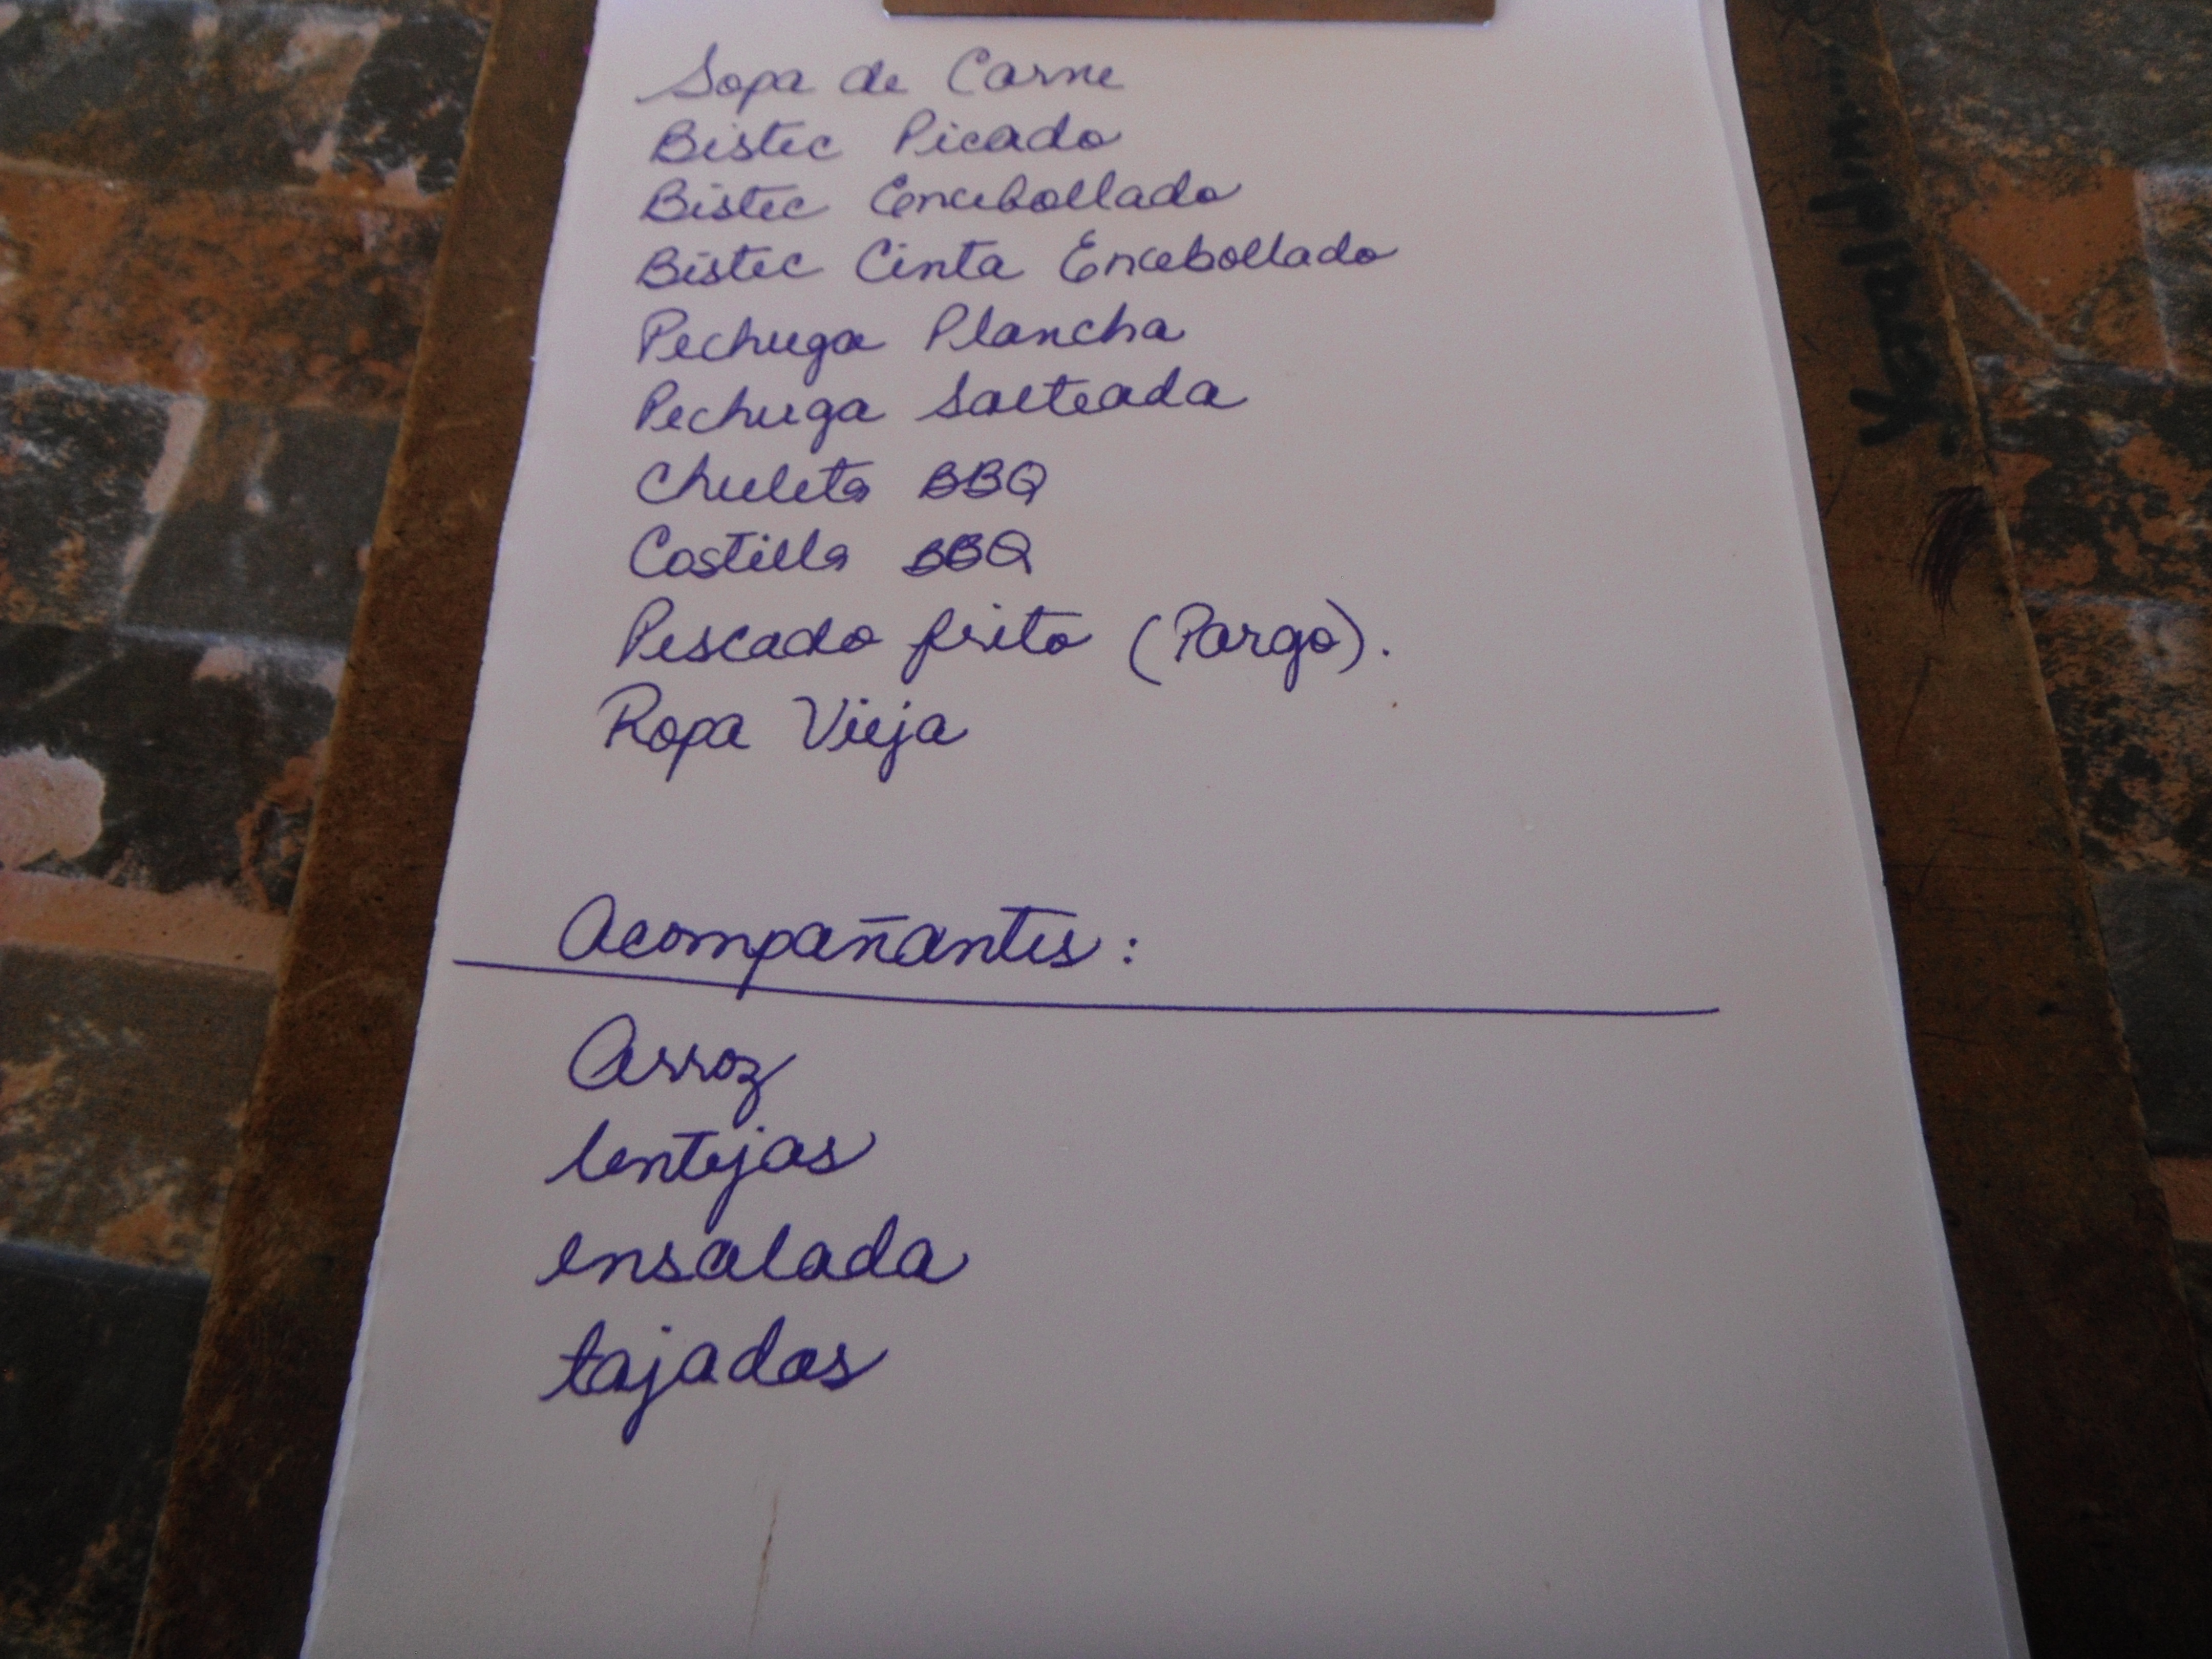 Sopa de Carne
Bistec Picado
Bistec Encebollado
Bistec Cinta Encebollado
Pechuga Plancha
Pechuga Salteada
Chuleta BBQ
Costilla BBQ
Pescado frito (Pargo).
Ropa Vieja
Acompañantes:
Arroz
lentejas
ensalada
tajadas